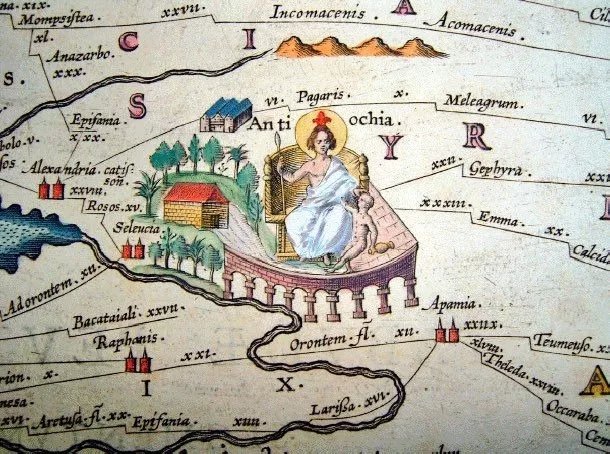 xix.
xxvii.
Incomacenis
A
Mompsistea
Acomacenis.
xl.
C
I
Anazarbo.
xxx.
S.
vi.
Pagaris.
x.
Meleagrum.
S
Epifania.
Anti ochia.
Y
R
xxx.
xxii.
Gephyra.
Alexandria. catis=
son.
xxviii.
xxxiii.
Emma.
xx.
Rosos. xv.
Seleucia.
Adorontem. xii.
Bacataiali. xxvii.
Apamia.
xxiix.
Raphanis.
xxi.
Orontem. fl.
xii.
Teumeuso. xx
xlviii.
Thaleda. xxviii.
A
x.
I
X.
Larissa. xvi.
Occaraba.
xvi.
Aretusa. fl. xx.
Epifania.
xiii.